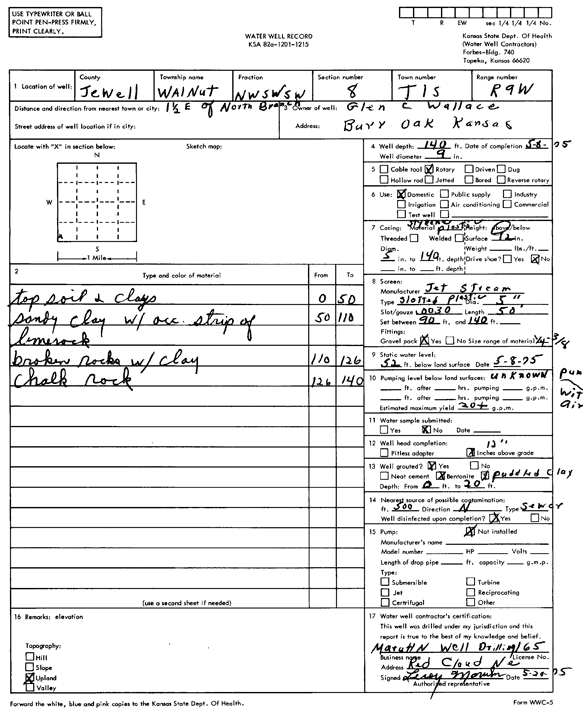 USE TYPEWRITER OR BALL
POINT PEN-PRESS FIRMLY,
PRINT CLEARLY.
WATER WELL RECORD
KSA 82a-1201-1215
T R EW sec 1/4 1/4 1/4 No.
Kansas State Dept. Of Health
(Water Well Contractors)
Forbes-Bldg. 740
Topeka, Kansas 66620
1 Location of well: County Township name Fraction Section number Town number Range number
Jewell WAlNut NWSWSW 8 T1S R9W
Distance and direction from nearest town or city: 1½ E of North Branch
3 Owner of well: Glen C Wallace
Street address of well location if in city:
Address: Burr Oak Kansas
Locate with "X" in section below: Sketch map:
N
W E
S
1 Mile
4 Well depth: 140 ft. Date of completion 5-8-75
Well diameter 9 in.
5 Cable tool X Rotary Driven Dug
Hollow rod Jetted Bored Reverse rotary
6 Use: X Domestic Public supply Industry
Irrigation Air conditioning Commercial
Test well
7 Casing: Material plastic Height: Above/below
Threaded Welded Surface 12 in.
Diam. Weight lbs./ft.
5 in. to 140 ft. depth Drive shoe? Yes X No
in. to ft. depth
2 Type and color of material From To
top soil & clays 0 50
sandy clay w/ occ. strip of 50 110
limerock
broken rocks w/ clay 110 126
chalk rock 126 140
(use a second sheet if needed)
8 Screen:
Manufacturer Jet Stream
Type Slotted Plastic Dia. 5"
Slot/gauze .0030 Length 50'
Set between 90 ft. and 140 ft.
Fittings:
Gravel pack X Yes No Size range of material 1/4-3/8
9 Static water level:
52 ft. below land surface Date 5-8-75
10 Pumping level below land surfaces: unknown
ft. after hrs. pumping g.p.m.
ft. after hrs. pumping g.p.m.
Estimated maximum yield 20+ g.p.m.
11 Water sample submitted:
Yes X No Date
12 Well head completion: 12"
Pitless adapter X Inches above grade
13 Well grouted? X Yes No
Neat cement X Bentonite X puddled Clay
Depth: From 0 ft. to 20 ft.
14 Nearest source of possible contamination:
ft. 300 Direction N Type Sewer
Well disinfected upon completion? X Yes No
15 Pump: X Not installed
Manufacturer's name
Model number HP Volts
Length of drop pipe ft. capacity g.m.p.
Type:
Submersible Turbine
Jet Reciprocating
Certrifugal Other
16 Remarks: elevation
Topography:
Hill
Slope
X Upland
Valley
17 Water well contractor's certification:
This well was drilled under my jurisdiction and this
report is true to the best of my knowledge and belief.
Well Drilling 165
Business name License No.
Address Red Cloud Ne
Signed Date 5-20-75
Authorized representative
Forward the white, blue and pink copies to the Kansas State Dept. Of Health.
Form WWC-5